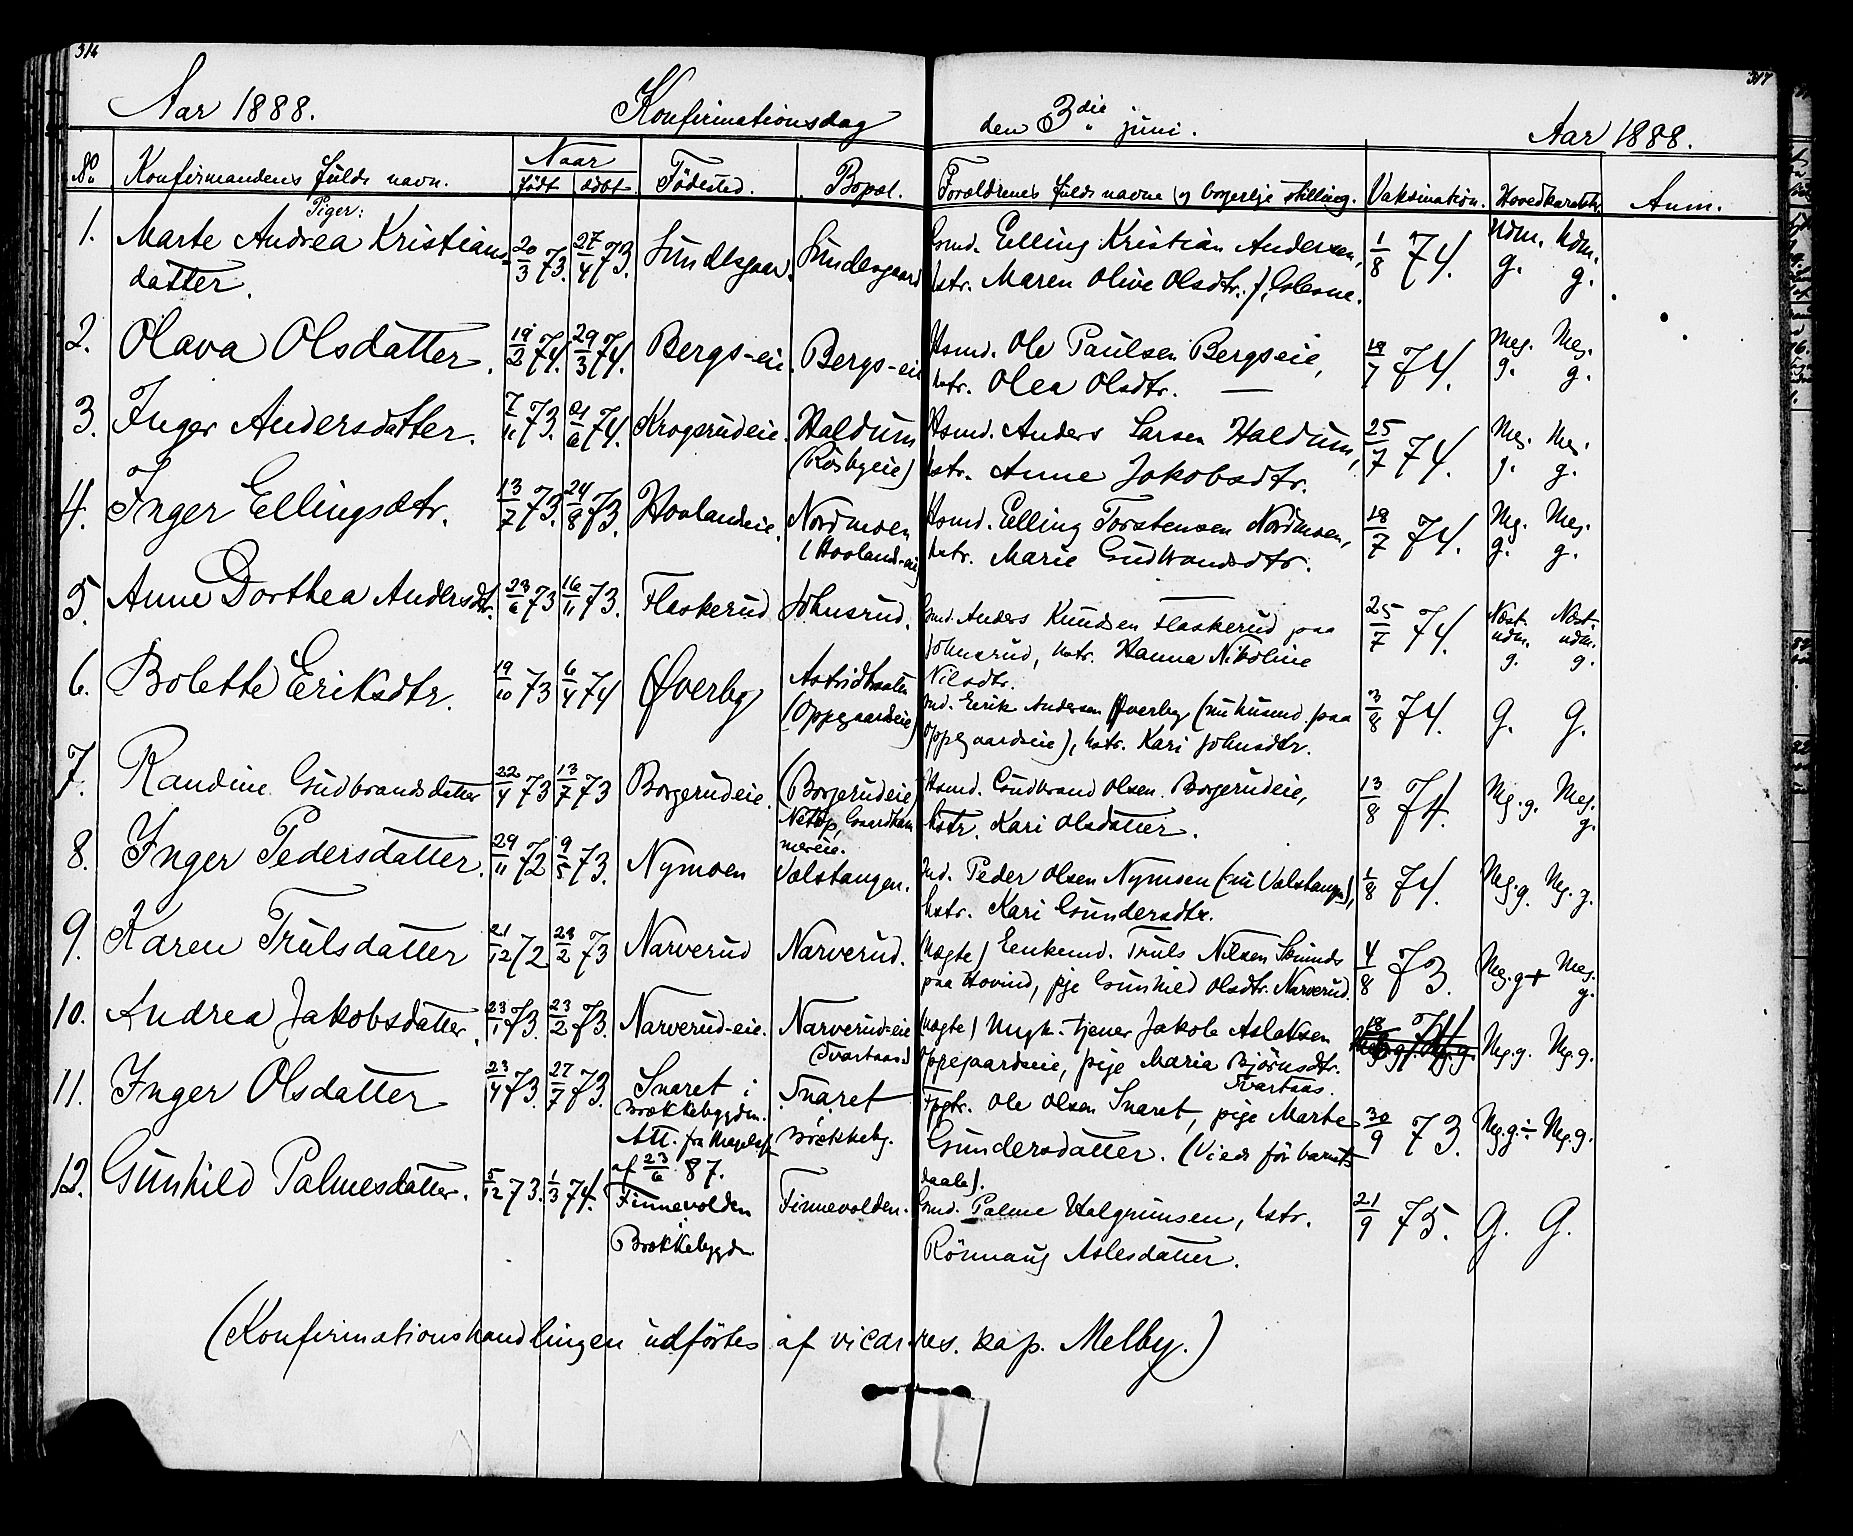 316
317
Aar 1888. Konfirmationsdag den 3die juni. Aar 1888.
No Konfirmandens fulde navn. Naar født døbt Födested. Bopæl. Forældrenes fulde navne og borgerlige stilling. Vaksination. Hovedkarakter. Anm.
Piger:
1. Marte Andrea Kristians- 20/3 73. 27/4 73. Sundesgaar. Sundesgaard Gmd. Elling Kristian Andersen, 1/8 74. Udm. Udm.
datter. hstr. Maren Olive Olsdtr. g. g.
2. Olava Olsdatter. 19/2 74. 29/3 74. Bergs-eie. Bergs-eie Hsmd. Ole Paulsen Bergseie, 19/7 74. Meg. Meg.
hstr. Olea Olsdtr. — g. g.
3. Inger Andersdatter. 7/11 73. 21/6 74. Krogerudeie. Haldum Hsmd. Anders Larsen Haldum, 25/7 74. Meg. Meg.
(Rosbyeie) hstr. Anne Jakobsdtr. g. g.
4. Inger Ellingsdtr. 13/7 73. 24/8 73. Hovlandeie. Nordmoen Hsmd. Elling Torstensen Nordmoen, 18/7 74. Mg. Meg.
(Hovland-eie) hstr. Marie Gudbrandsdtr. g. g.
5. Anne Dorthea Andersdtr. 23/6 73 16/11 73. Flaskerud Johnsrud. Gmd. Anders Knudsen Flaskerud paa 25/7 74. Næst- Næst-
Johnsrud, hstr. Hanna Nikoline udm. udm.
Nilsdtr. g. g.
6. Bolette Eriksdtr. 19/10 73 6/4 74 Øverby Astridbraaten Gmd. Erik Andersen Øverby (nu husmd. paa 3/8 74. G. G.
(Oppegaardseie) Oppegaardseie), hstr. Kari Johnsdtr.
7. Randine Gudbrandsdatter 22/4 73 13/7 73 Borgerudeie. (Borgerudeie) Hsmd. Gudbrand Olsen Borgerudeie, 13/8 74. Mg. g. Meg.
hstr. Kari Olsdatter. g.
mereie.
8. Inger Pedersdatter. 29/11 72 9/5 73. Nymoen Valstangen. Gmd. Peder Olsen Nymoen (nu Valstangen), 1/8 74. Mg. g. Mg. g.
hstr. Kari Gundersdtr.
9. Karen Trulsdatter 21/12 72 23/2 73 Narverud Narverud. (Uægte) Enkemd. Truls Nilsen 4/8 73. Meg. g + Meg.
paa Hovind, pige Gunhild Olsdtr. Narverud. g.
10. Andrea Jakobsdatter. 23/1 73. 23/2 73. Narverud-eie. Narverud-eie (Uægte) Ungk. tjener Jakob Aslaksen Mg. g. Mg. g.
(Svartaas) Oppegaardseie, pige Maria Björnsdtr.
Svartaas.
11. Inger Olsdatter 23/4 73. 27/7 73. Snaret i Snaret Fgtr. Ole Olsen Snaret, pige Marte 30/9 73. Mg. g ÷ Mg. g.
Brækkebygden. Brækkeby. Gundersdatter. (Viede för barnets
Att. fra
af 23/6 87. daab).
12. Gunhild Palmesdatter. 5/12 73. 1/3 74. Finnevolden Finnevolden. Gmd. Palme Halgrimsen, hstr. 21/9 75. G. G.
Brækkebygden Rönnaug Aslesdatter.
(Konfirmationshandlingen udförtes af vicar. res. kap. Melby.)